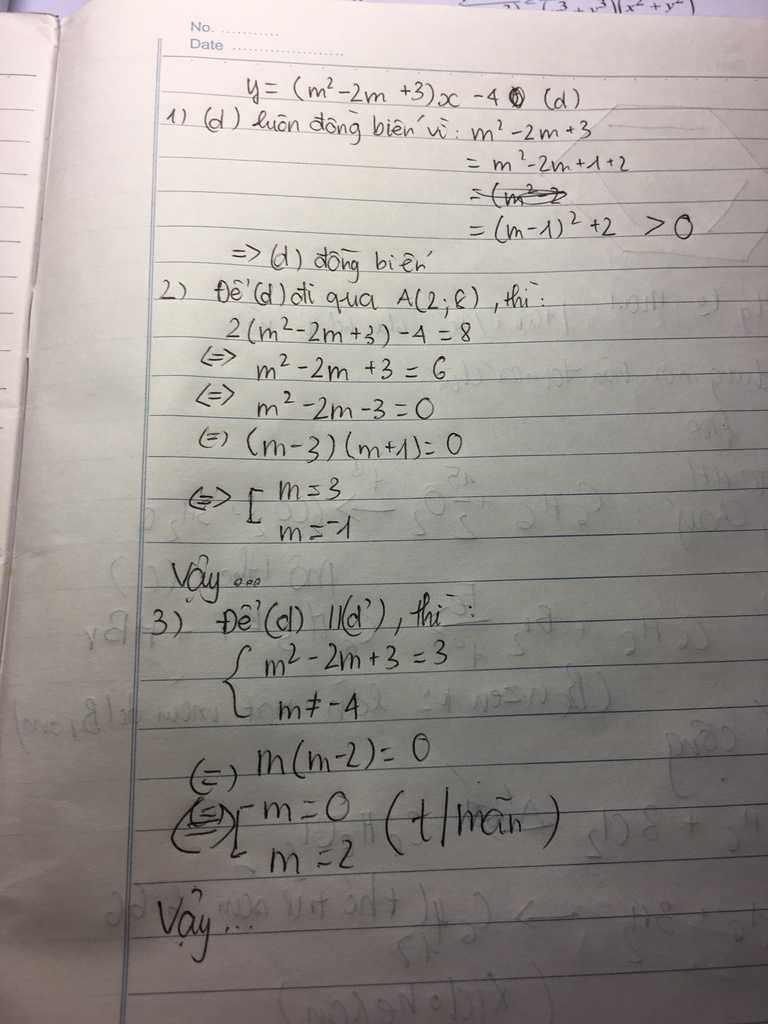 No. ...........
Date ......................
y = (m²-2m +3)x -4 (d)
1) (d) luôn đồng biến vì: m²-2m+3
= m²-2m+1+2
= (m-1)² +2 > 0
=> (d) đồng biến
2) Để (d) đi qua A(2;8), thì:
2(m²-2m+3) -4 = 8
<=> m² -2m +3 = 6
<=> m² -2m -3 = 0
(=) (m-3)(m+1)= 0
<=> [ m = 3
m = -1
Vậy ...
3) Để (d) //(d'), thì:
{ m² - 2m + 3 = 3
m ≠ -4
(=) m(m-2) = 0
(=) [ m = 0 (t/mãn)
m = 2
Vậy...